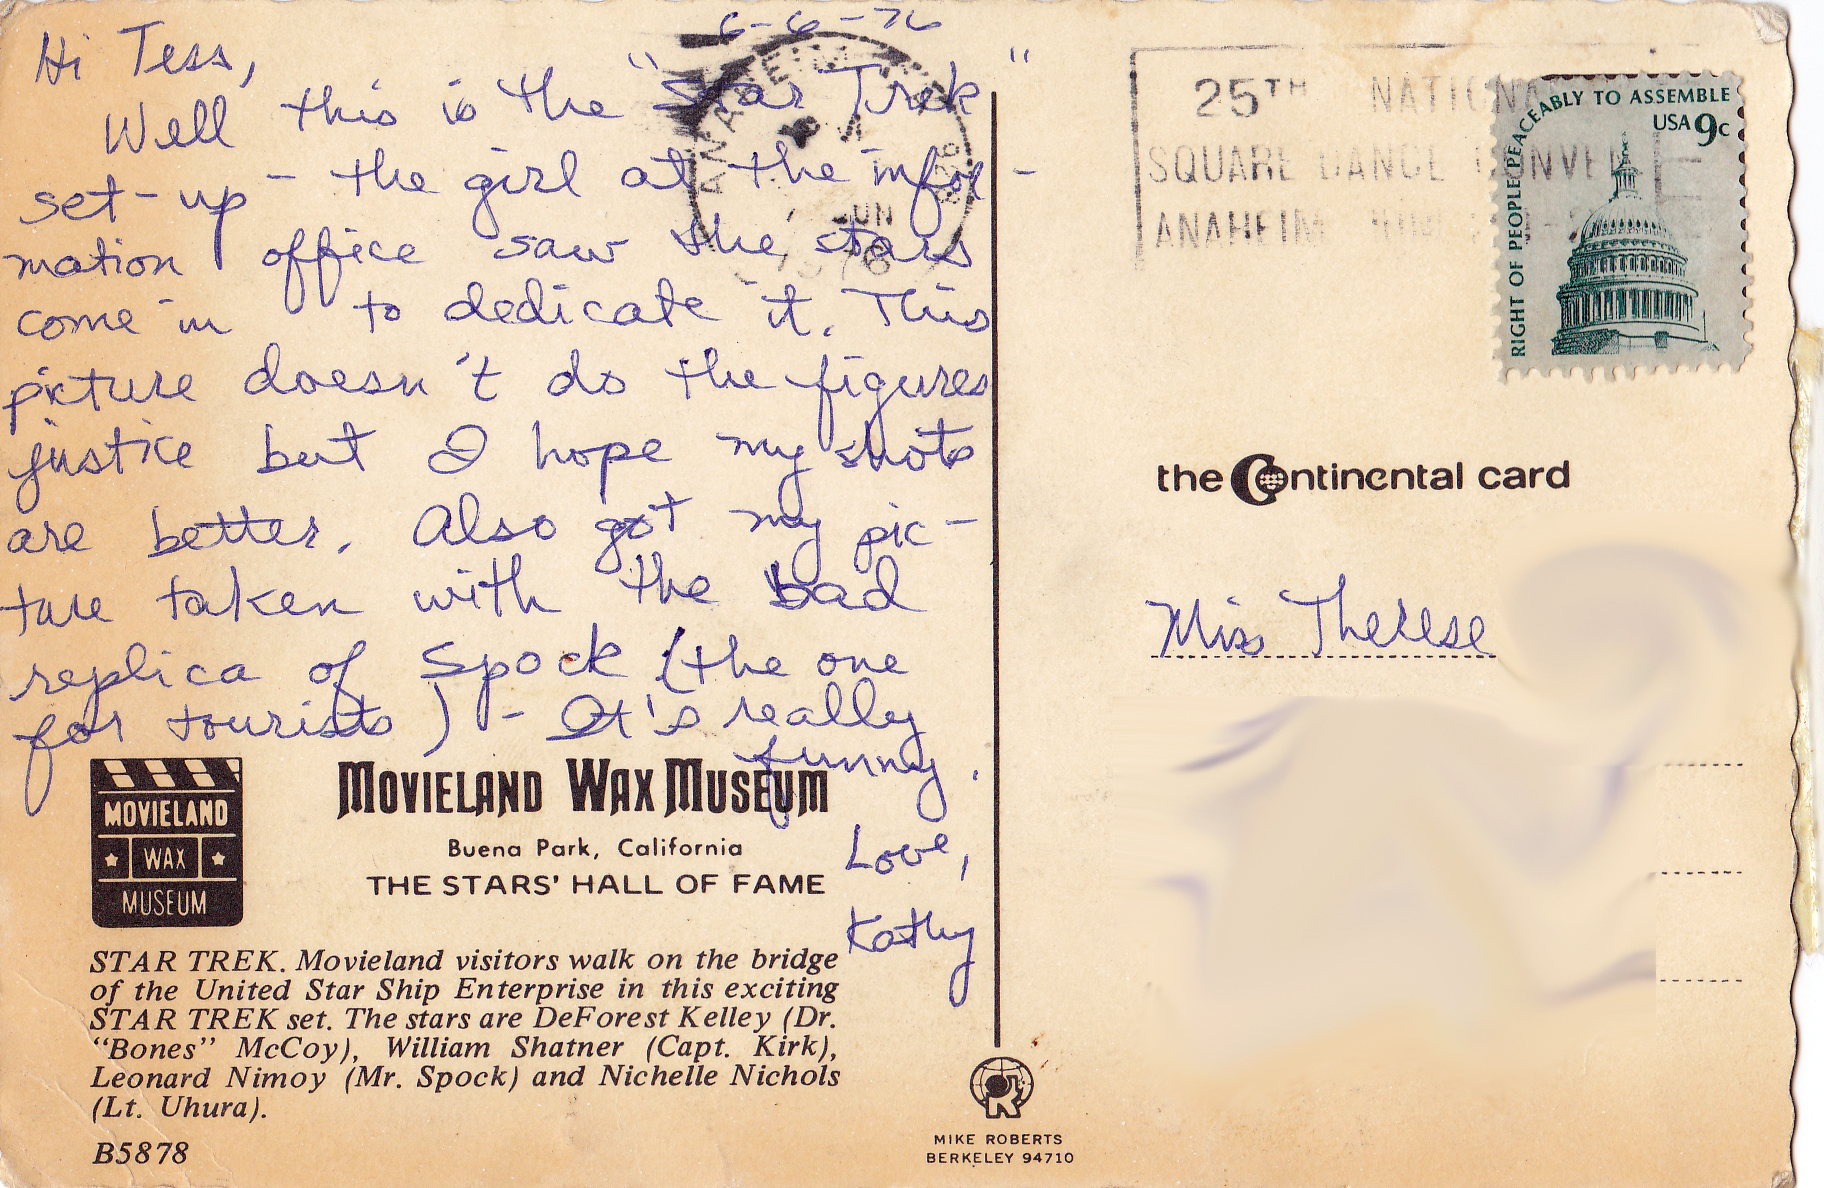 6-6-76
Hi Tess,
Well this is the "Star Trek"
set-up - the girl at the infor-
mation office saw the stars
come in to dedicate it. This
picture doesn't do the figures
justice but I hope my shots
are better. Also got my pic-
ture taken with the bad
replica of Spock (the one
for tourists) - It's really
funny.
Love,
Kathy
MOVIELAND
WAX
MUSEUM
MOVIELAND WAX MUSEUM
Buena Park, California
THE STARS' HALL OF FAME
STAR TREK. Movieland visitors walk on the bridge
of the United Star Ship Enterprise in this exciting
STAR TREK set. The stars are DeForest Kelley (Dr.
"Bones" McCoy), William Shatner (Capt. Kirk),
Leonard Nimoy (Mr. Spock) and Nichelle Nichols
(Lt. Uhura).
B5878
MIKE ROBERTS
BERKELEY 94710
ANAHEIM
JUN
1976
25TH NATIONA
SQUARE DANCE CONVE
ANAHEIM
RIGHT OF PEOPLE PEACEABLY TO ASSEMBLE
USA 9c
the Continental card
Miss Therese